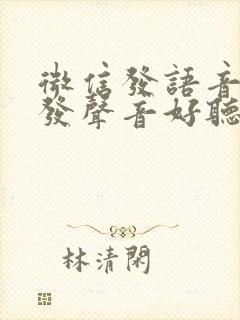 微信發語音
發聲音好聽
林清閑